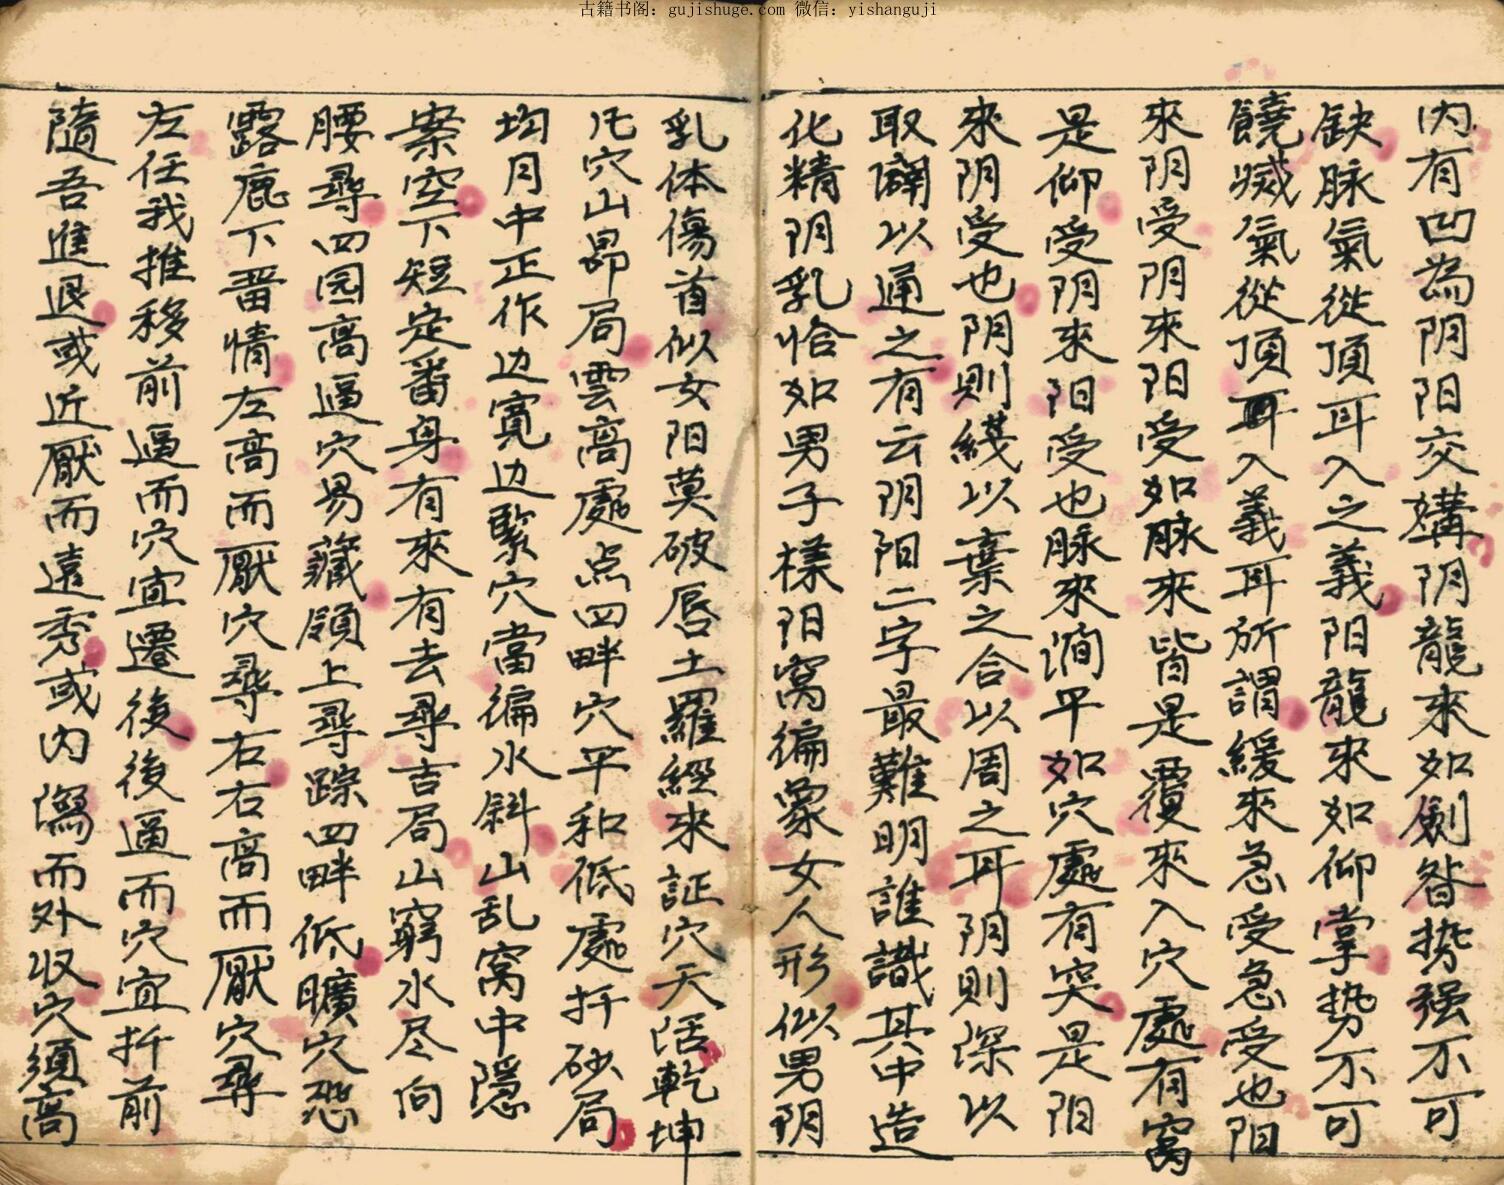 古籍书阁：gujishuge.com 微信：yishanguji
内有凹為阴阳交媾阴龍來如劍脊势强不可
缺脉氣從頂耳入之義阳龍來如仰掌势不可
饒减氣從頂耳入義耳所謂緩來急受急受也阳
來阴受阴來阳受如脉來皆是覆來入穴處有窝
是仰受阴來阳受也脉來澗平如穴處有突是阳
來阴受也阴則綫以棄之合以周之耳阴則深以
取闢以通之有云阴阳二字最難明誰識其中造
化精阴乳恰如男子樣阳窝徧象女人形似男阴
乳体傷首似女阳莫破唇土羅經來証穴天活乾坤
凡穴山昴局雲高處点四畔穴平和低處扦砂局
均月中正作边寬边緊穴當徧水斜山乱窝中隱
案空下短定番身有來有去尋吉局山窮水尽向
腰尋四园高逼穴易藏領上尋踪四畔低曠穴恐
露鹿下畨情左高而厭穴尋右右高而厭穴尋
左任我推移前逼而穴宜遷後後逼而穴宜扦前
隨吾進退或近厭而遠秀或内濁而外収穴須高